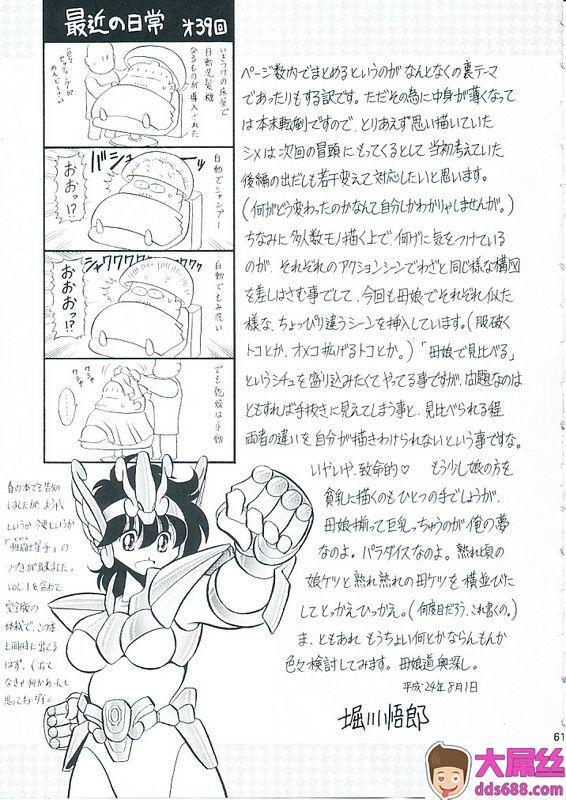 最近の日常 オ39回
いきつけの床屋で
自動洗髪機
なるものが導入された
バシューーーッ
自動でシャンプー
おおっ!?
シャワワワワワワワ
自動でもみ洗い
おおおっ!?
でも乾燥は手動
ワシャ
ワシャ
ページ数内でまとめるというのがなんとなくの裏テーマ
であったりもする訳です。ただその為に中身が薄くなって
は本末転倒ですので、とりあえず思い描いていた
シメは次回の冒頭にもってくるとして当初考えていた
後編の出だしも若干変えて対応したいと思います。
(何がどう変わったのかなんて自分しかわかりゃしませんが。)
ちなみに多人数モノ描く上で何げに気をつけている
のが、それぞれのアクションシーンでわざと同じ様な構図
を差しはさむ事でして、今回も母娘でそれぞれ似た
様な、ちょっぴり違うシーンを挿入しています。(服破く
トコとか、オメコ拡げるトコとか。)「母娘で見比べる」
というシチュを盛り込みたくてやってる事ですが、問題なのは
ともすれば手抜きに見えてしまう事と、見比べられる程
両者の違いを自分が描きわけられないという事ですな。
いやいや、致命的♡ もう少し娘の方を
貧乳に描くのもひとつの手でしょうが、
母娘揃って巨乳っちゅうのが俺の夢
なのよ。パラダイスなのよ。熟れ頃の
娘ケツと熟れ熟れの母ケツを横並びに
してとっかえひっかえ。(何度目だろう、これ書くの。)
ま、ともあれもうちょい何とかならんもんか
色々検討してみます。母娘道奥深し。
平成24年8月1日
堀川悟郎
春の本でも告知
しましたが、ようやく
というか
のつづきが出ました。
vol.1を含めて
完全版の
体裁で、この本
と同時に出てる
はず。(出て
なきゃ何かあったと
思ってねダイ。)
61
大屌丝
dds688.com